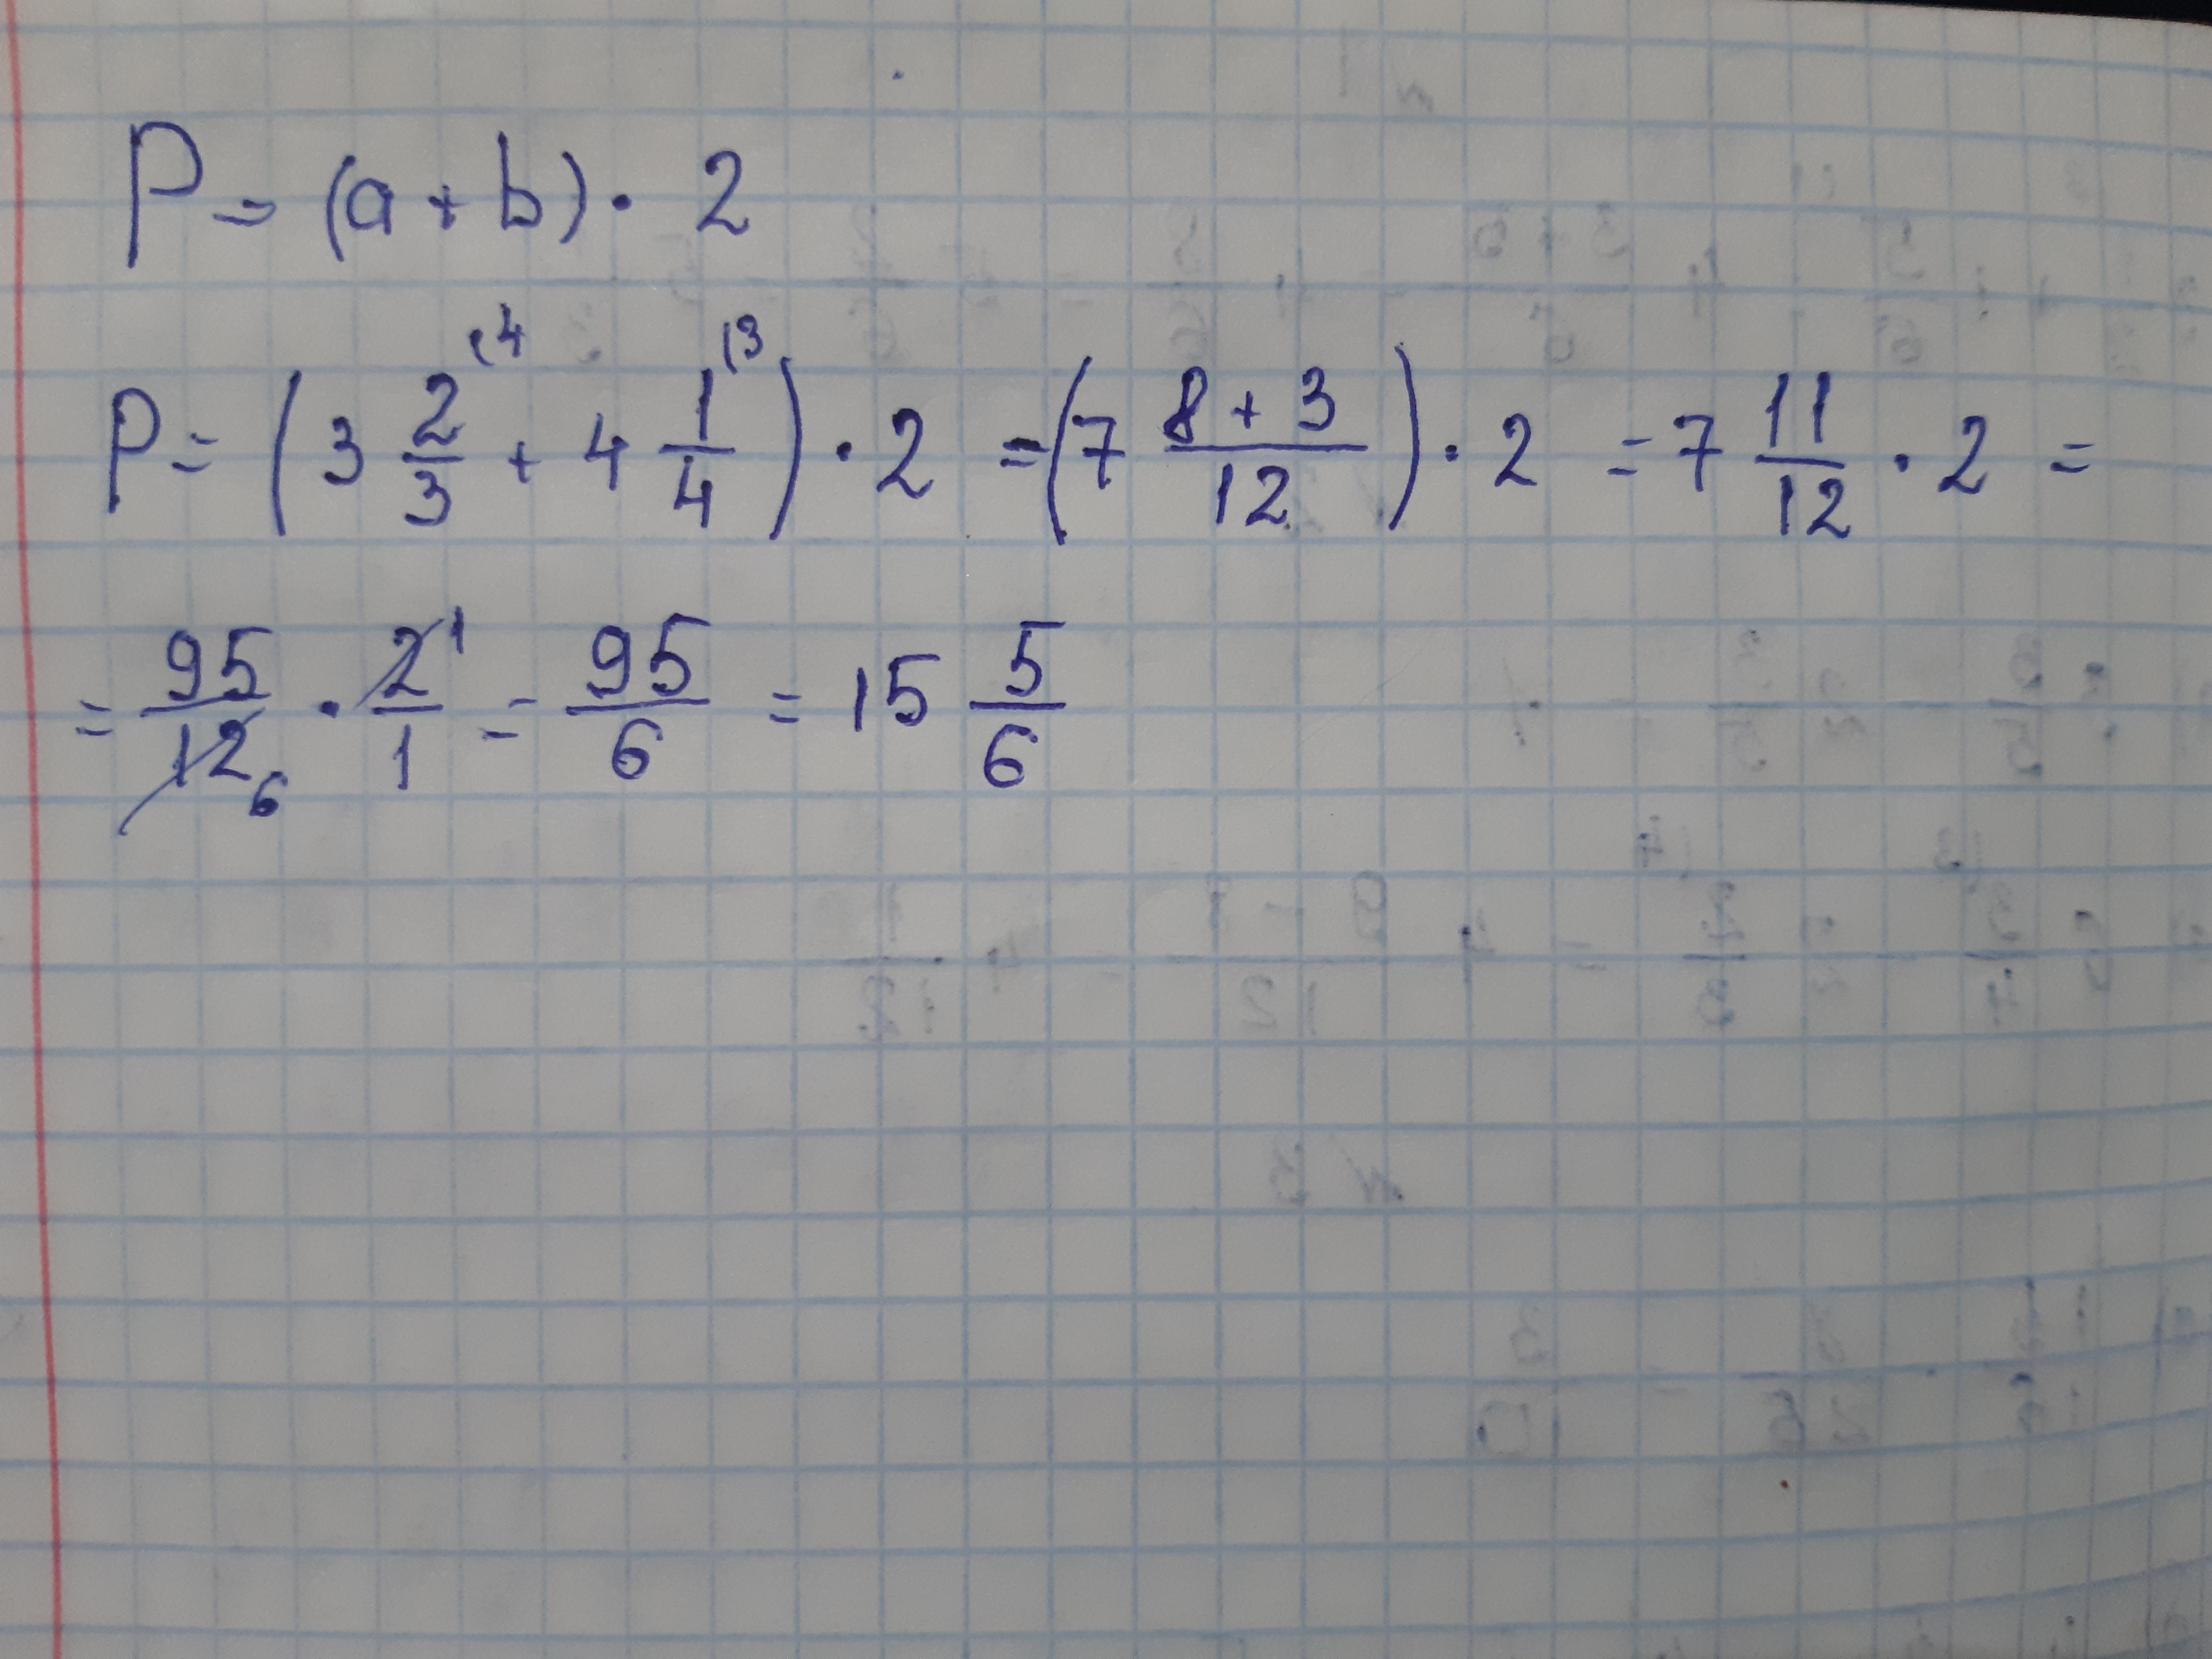 P = (a + b) · 2
P = (3 2/3 (4 + 4 1/4 (3) · 2 = (7 8 + 3/12) · 2 = 7 11/12 · 2 =
= 95/12 6 · 2 1/1 = 95/6 = 15 5/6